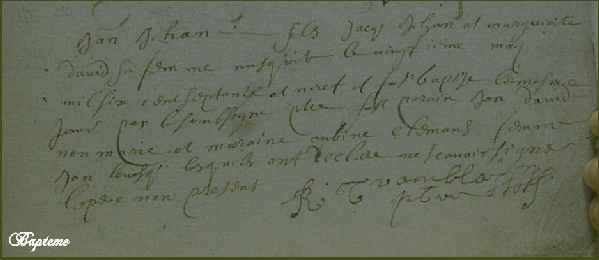 Jan Jehan fils Jacq Jehan et marguerite
david sa femme nasquit le vingtieme may
mil six cent septante et neuf et fut baptise le mesme
jour par le soubsigne ptre fust parain Jan david
non marie et maraine aubine clemans femme
Jan lesquels ont declare ne scavoir signe
le pere non present
Bapteme